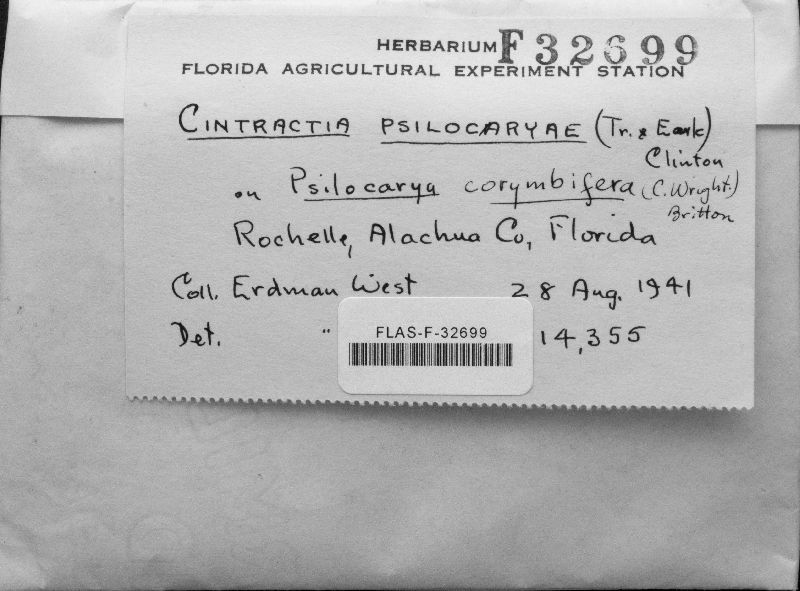 HERBARIUM F32699
FLORIDA AGRICULTURAL EXPERIMENT STATION
CINTRACTIA PSILOCARYAE (Tr. & Earle)
Clinton
on Psilocarya corymbifera (C. Wright.)
Britton
Rochelle, Alachua Co, Florida
Coll. Erdman West 28 Aug. 1941
Det. " 14,355
FLAS-F-32699